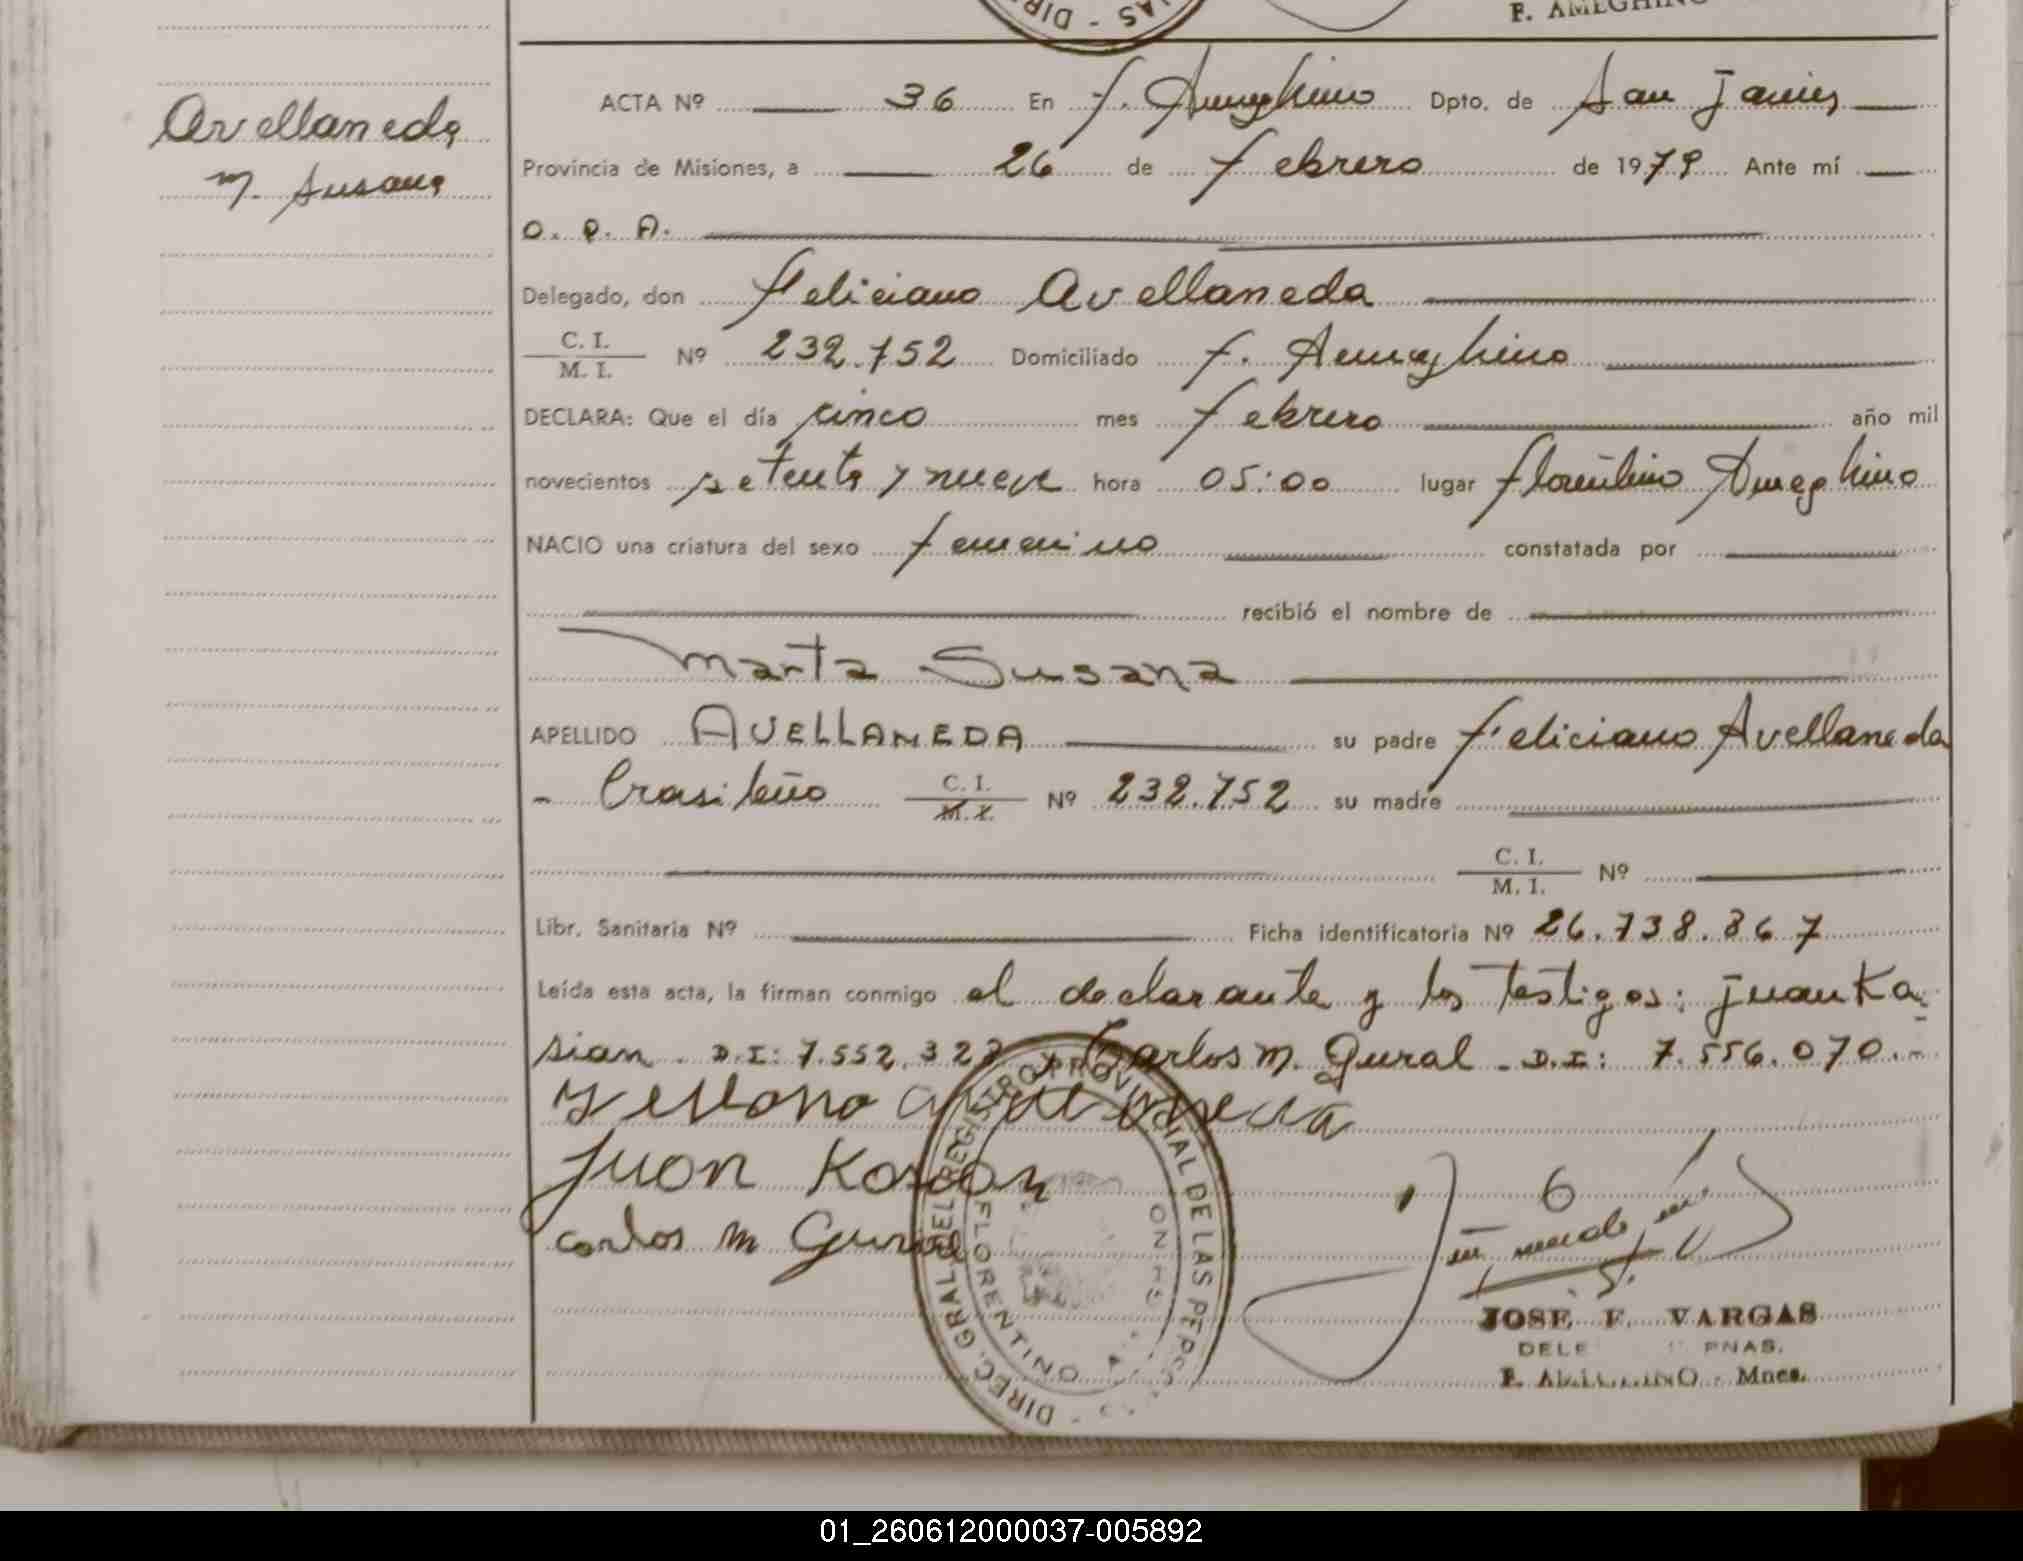 F. AMEGHINO
Avellaneda
M. Susana
ACTA Nº 36 En F. Ameghino Dpto. de San Javier
Provincia de Misiones, a 26 de Febrero de 1979 Ante mí
O. P. A.
Delegado, don Feliciano Avellaneda
C. I.
M. I. Nº 232.752 Domiciliado F. Ameghino
DECLARA: Que el día cinco mes Febrero año mil
novecientos setenta y nueve hora 05:00 lugar Florentino Ameghino
NACIO una criatura del sexo femenino constatada por
recibió el nombre de
Marta Susana
APELLIDO AVELLANEDA su padre Feliciano Avellaneda
- brasileño C. I. M. I. Nº 232.752 su madre
C. I.
M. I. Nº
Libr. Sanitaria Nº Ficha identificatoria Nº 26.738.867
Leída esta acta, la firman conmigo el declarante y los testigos: Juan Ka-
sian. D.I: 7.552.323 y Carlos M. Gural - D.I: 7.556.070.-
Juan Kasian
Carlos M Gural
DIREC. GRAL. DEL REGISTRO PROVINCIAL DE LAS PERS
FLORENTINO
JOSE F. VARGAS
DELE PNAS.
F. AMEGHINO - Mnes.
01_260612000037-005892